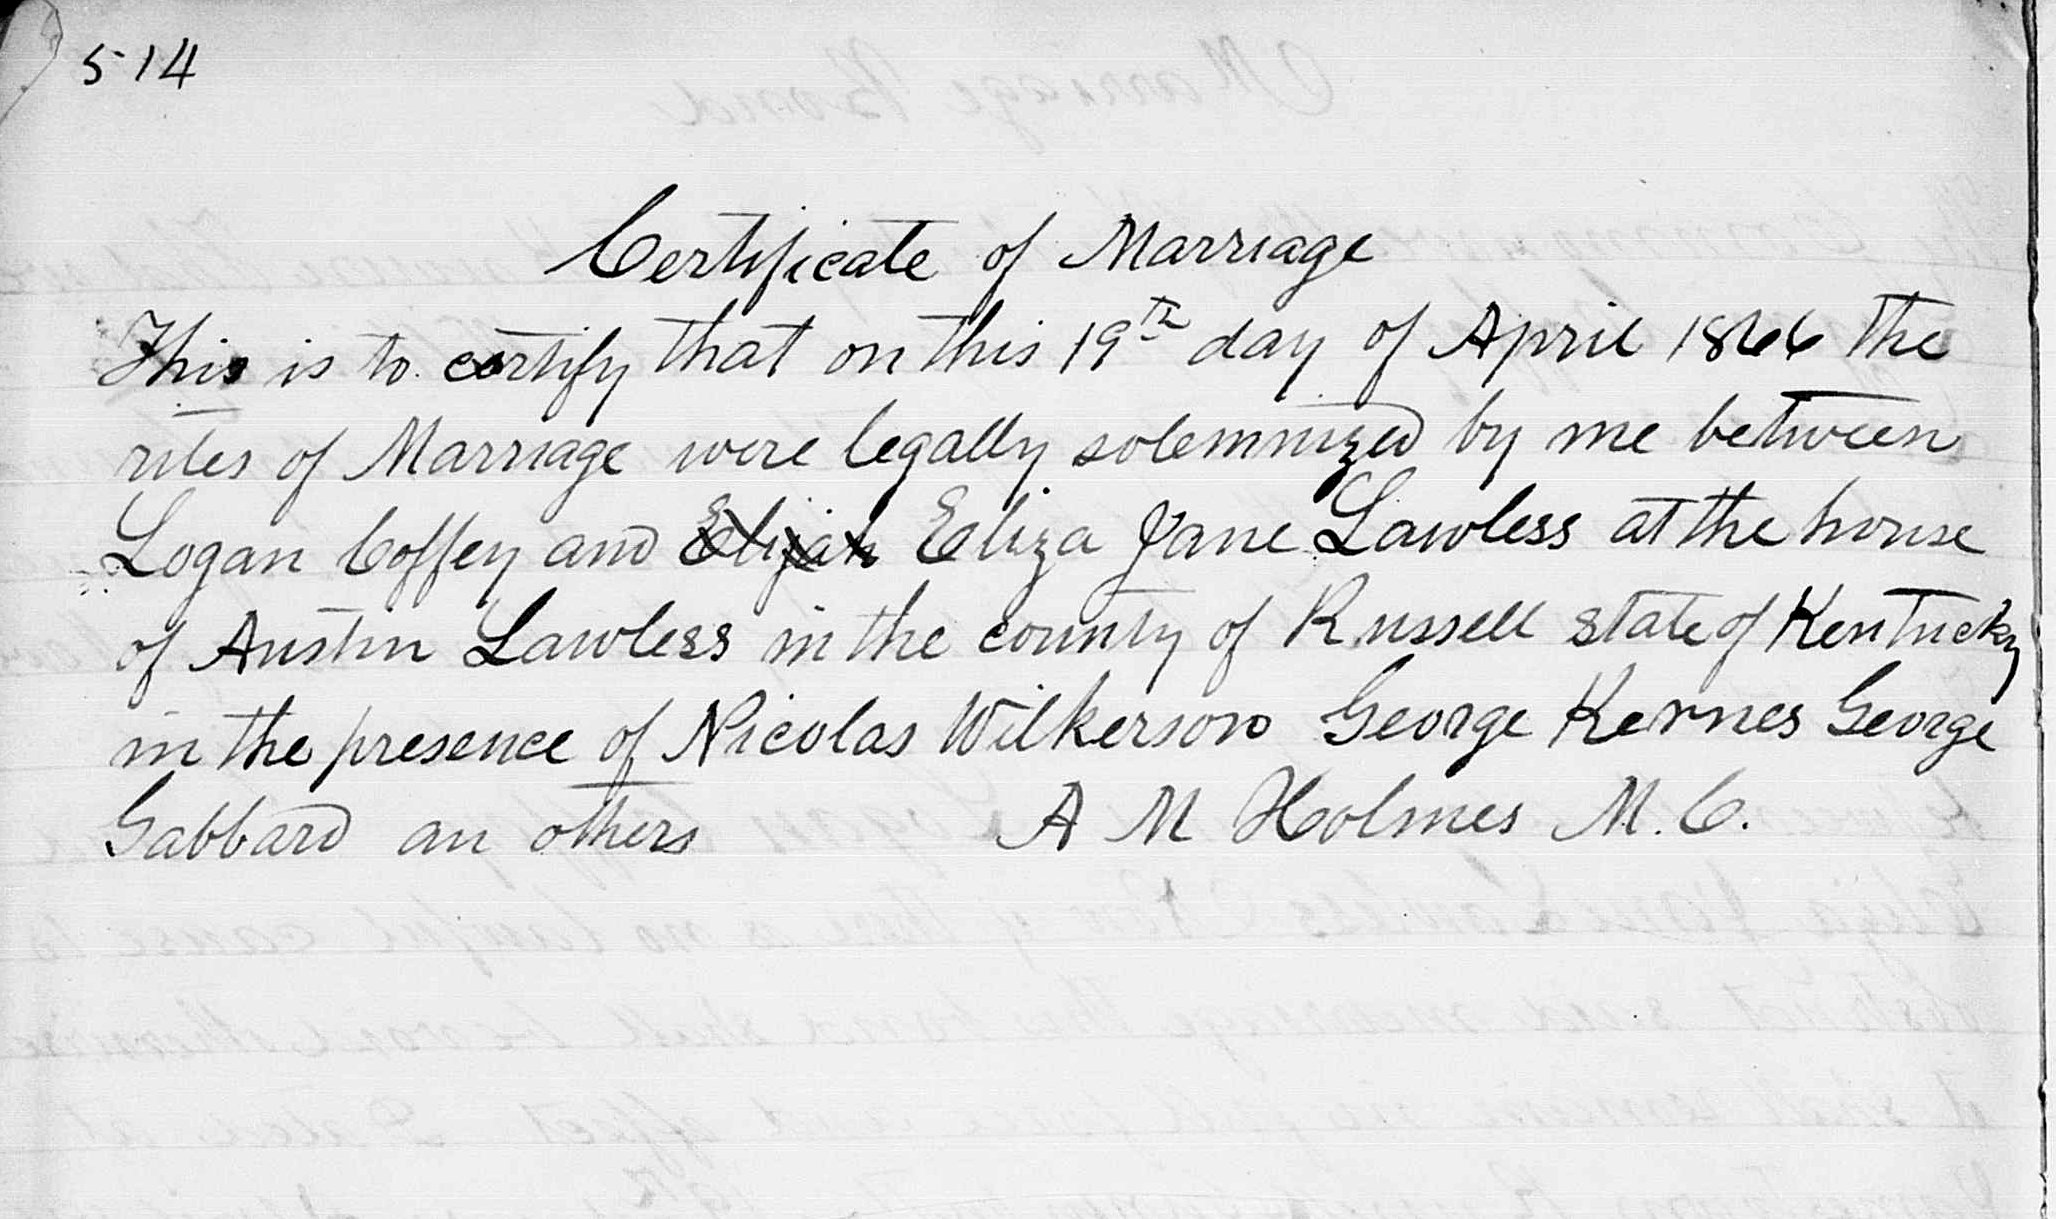 514
Certificate of Marriage
This is to certify that on this 19th day of April 1866 the
rites of Marriage were legally solemnized by me between
Logan Coffey and Elijah Eliza Jane Lawless at the house
of Austin Lawless in the county of Russell state of Kentucky
in the presence of Nicolas Wilkerson George Kernes George
Gabbard an others A M Holmes M.C.